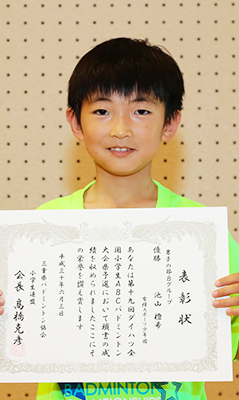 BADMINTON
表彰状
男子の部Bグループ
優勝
池山 橙希
有緝スポーツ少年団
あなたは第十九回ダイハツ全
国小学生ABCバドミントン
大会県予選において頭書の成
績を収められましたここにそ
の栄誉を讃え賞します
平成三十年六月三日
三重県バドミントン協会
小学生連盟
会長 高橋克彦
BADMINTON